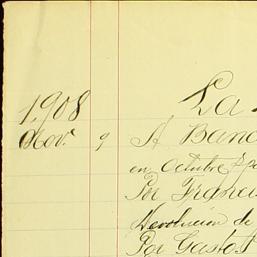 La
1908
Nov. 9 A Banc
en Octubre 
Por Franci
Devolucion de
Por Gastos